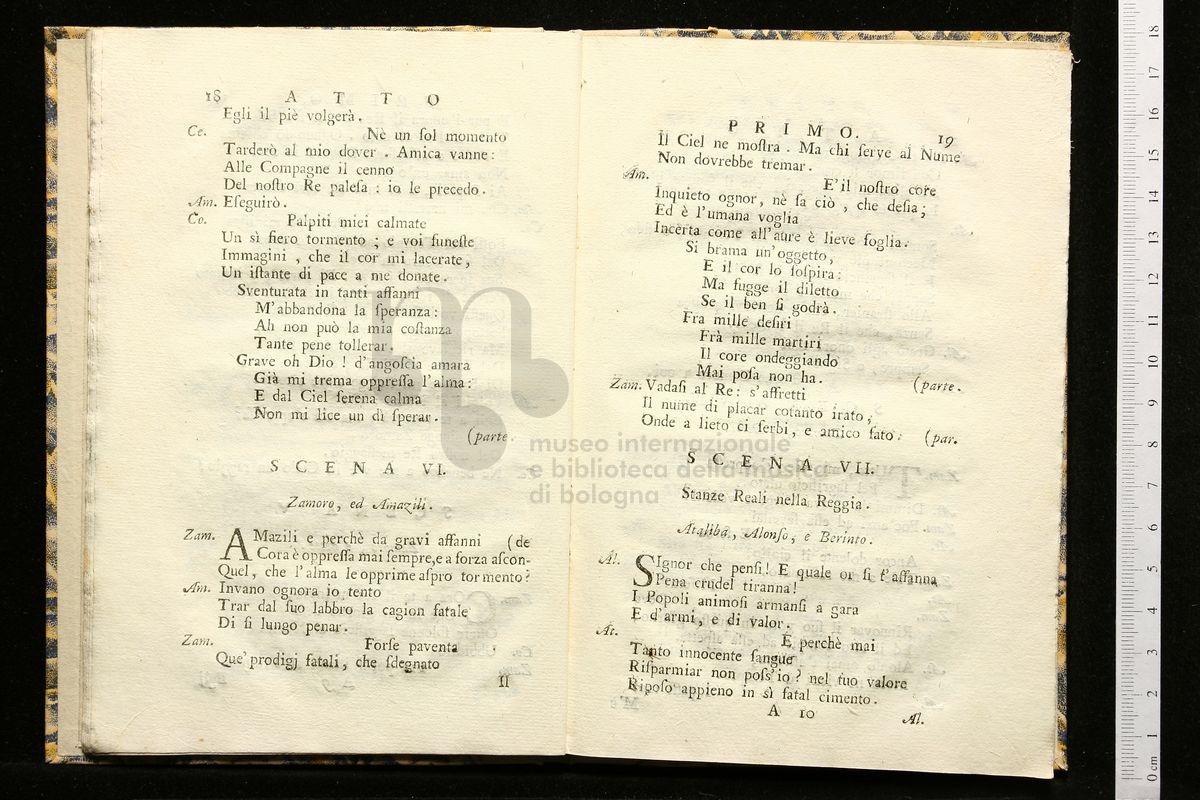 18 A T T O
Egli il piè volgerà.
Ce. Nè un ſol momento
Tarderò al mio dover . Amica vanne:
Alle Compagne il cenno
Del noſtro Re paleſa : io le precedo.
Am. Eſeguirò.
Co. Palpiti miei calmate
Un sì fiero tormento ; e voi funeſte
Immagini , che il cor mi lacerate,
Un iſtante di pace a me donate.
Sventurata in tanti affanni
M'abbandona la ſperanza:
Ah non può la mia coſtanza
Tante pene tollerar.
Grave oh Dio ! d'angoſcia amara
Già mi trema oppreſſa l'alma:
E dal Ciel ſerena calma
Non mi lice un dì ſperar.
(parte.
S C E N A VI.
Zamoro, ed Amazili.
Zam. AMazili e perchè da gravi affanni (de
Cora è oppreſſa mai ſempre,e a forza aſcon-
Quel, che l'alma le opprime aſpro tormento?
Am. Invano ognora io tento
Trar dal ſuo labbro la cagion fatale
Di ſi lungo penar.
Zam. Forſe paventa
Que' prodigj fatali, che ſdegnato
Il
P R I M O. 19
Il Ciel ne moſtra . Ma chi ſerve al Nume
Non dovrebbe tremar.
Am. E' il noſtro core
Inquieto ognor, nè ſa ciò , che deſia;
Ed è l'umana voglia
Incerta come all'aure è lieve foglia.
Si brama un'oggetto,
E il cor lo ſoſpira:
Ma fugge il diletto
Se il ben ſi godrà.
Fra mille deſiri
Frà mille martiri
Il core ondeggiando
Mai poſa non ha. (parte.
Zam. Vadaſi al Re: s'affretti
Il nume di placar cotanto irato,
Onde a lieto ci ſerbi, e amico fato: (par.
S C E N A VII.
Stanze Reali nella Reggia.
Ataliba, Alonſo, e Berinto.
Al. SIgnor che penſi! E quale or ſi t'affanna
Pena crudel tiranna!
I Popoli animoſi armanſi a gara
E d'armi, e di valor.
At. E perchè mai
Tanto innocente ſangue
Riſparmiar non poſs'io ? nel tuo valore
Ripoſo appieno in sì fatal cimento.
A 10 Al.
museo internazionale
e biblioteca della musica
di bologna
18
17
16
15
14
13
12
11
10
9
8
7
6
5
4
3
2
1
0 cm